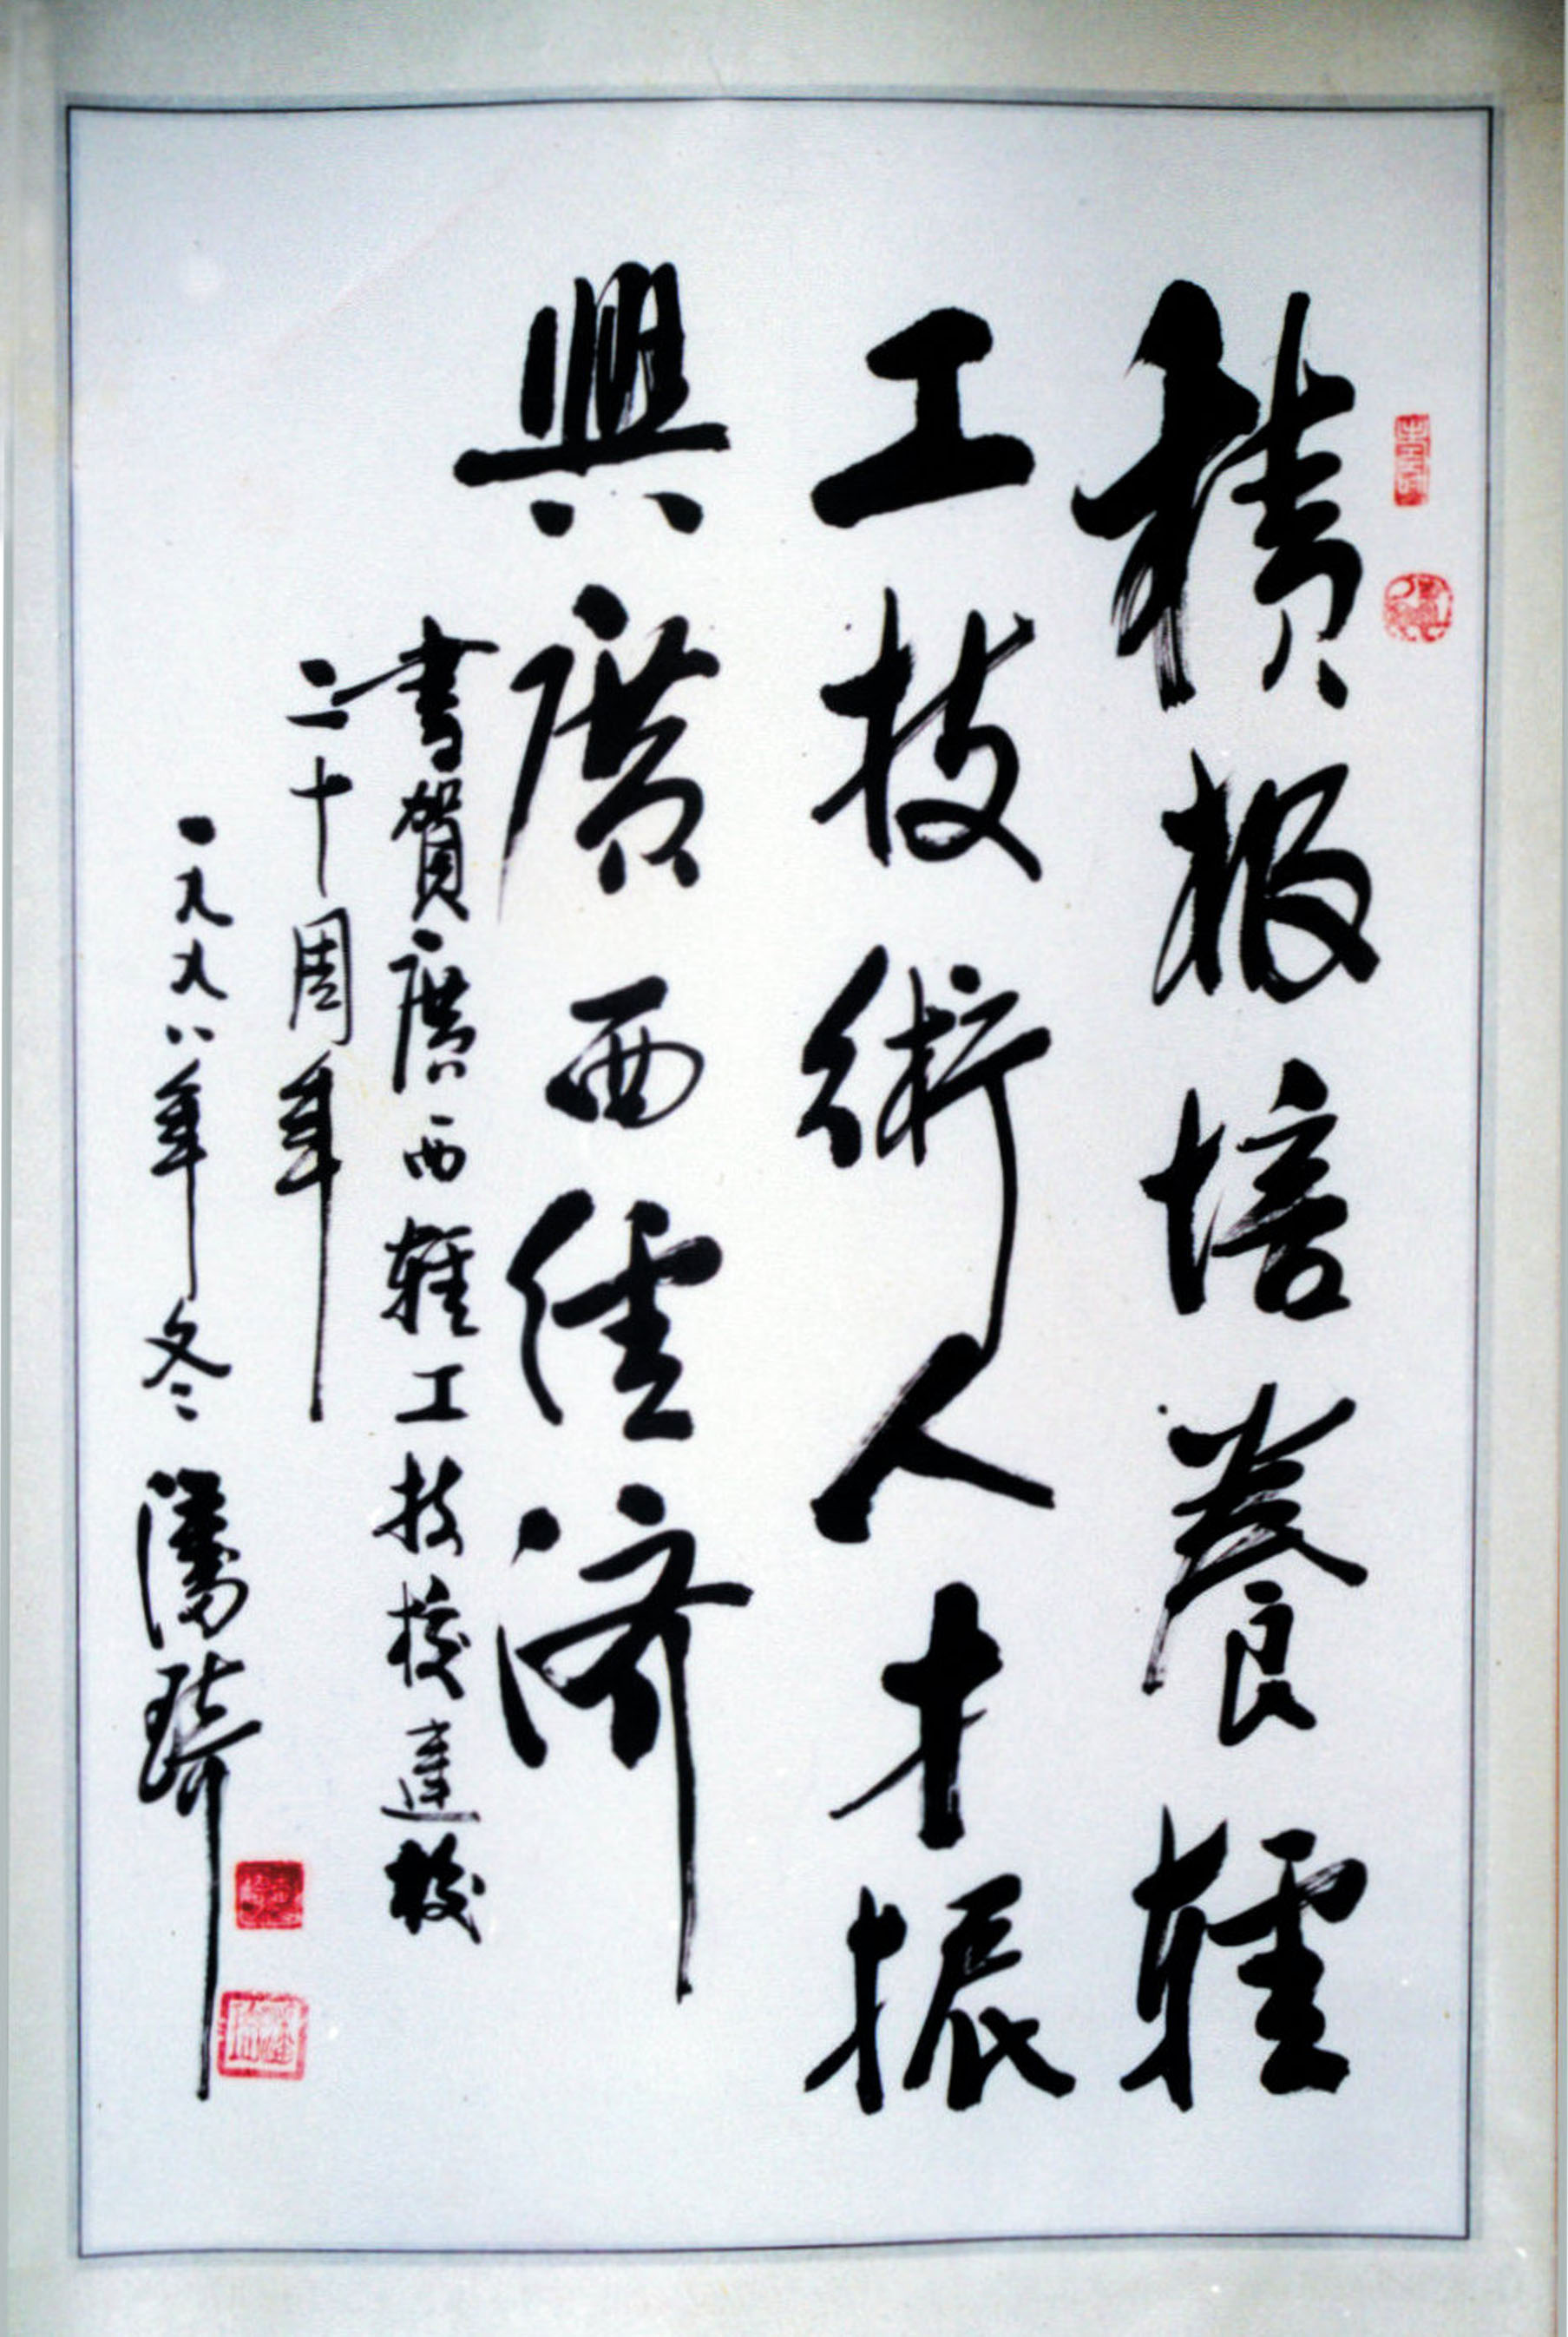 積极培養輕
工技術人才振
興廣西經济
書賀廣西輕工技校建校
二十周年
一九九八年冬 潘琦